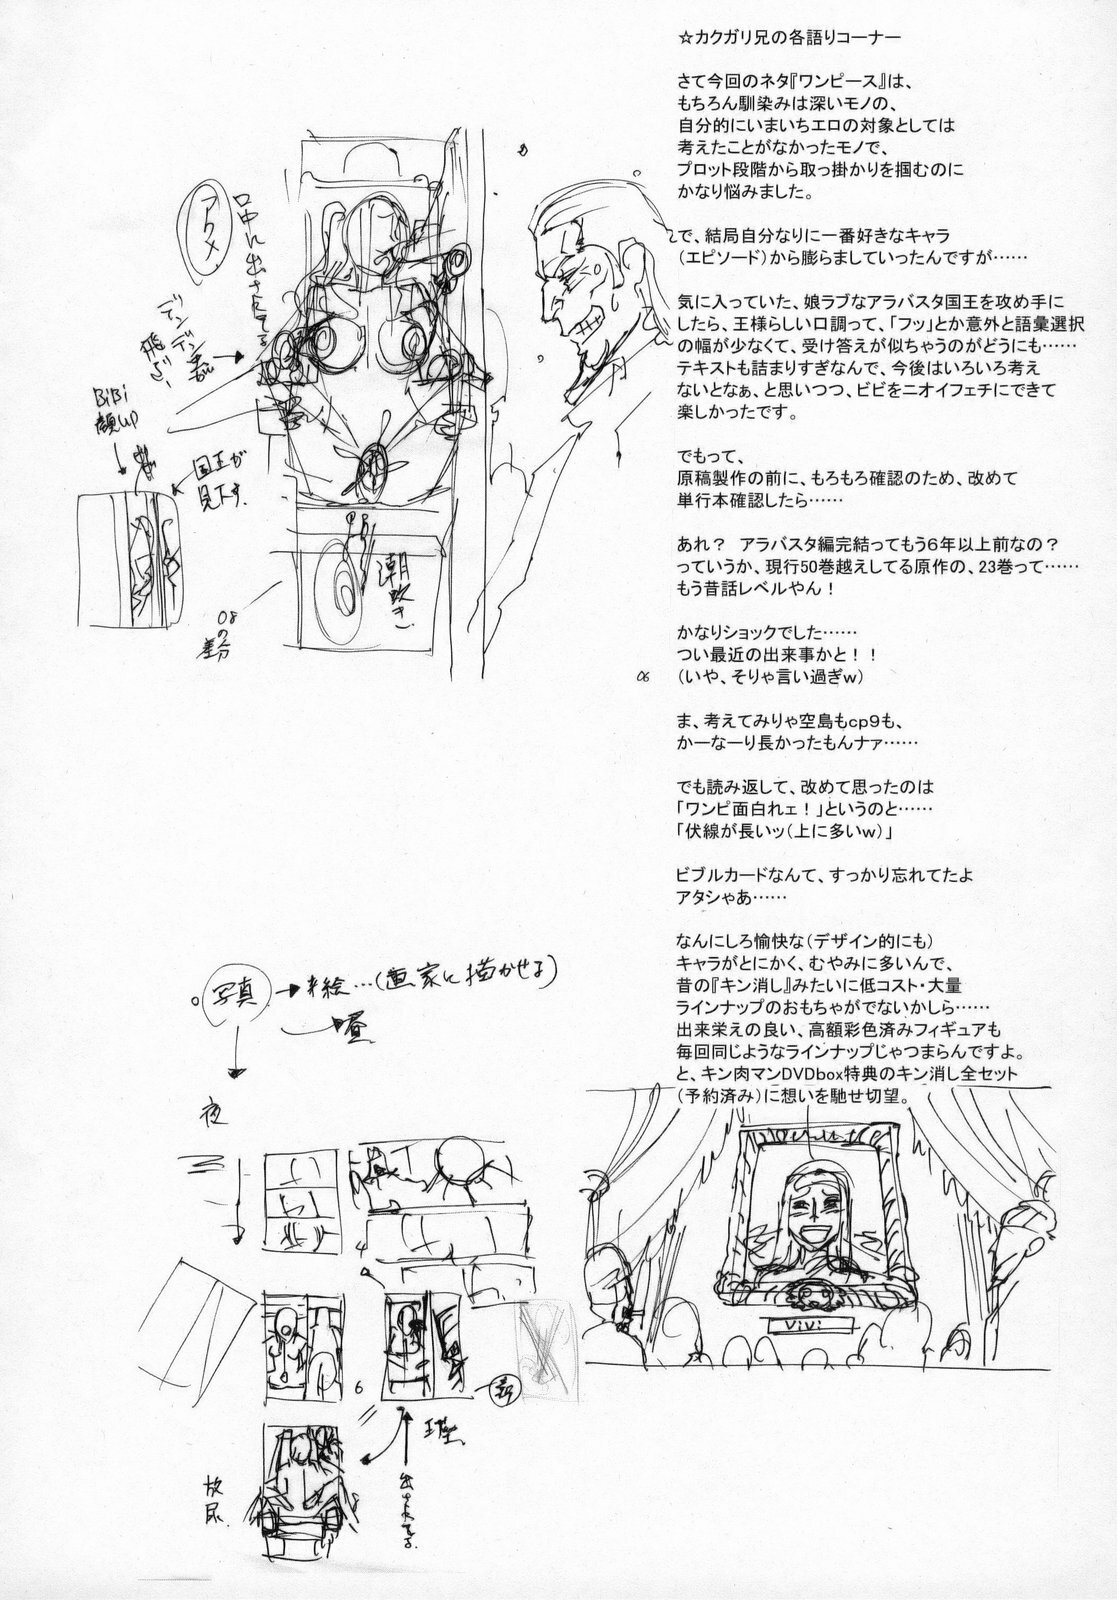 ☆カクガリ兄の各語りコーナー
さて今回のネタ『ワンピース』は、
もちろん馴染みは深いモノの、
自分的にいまいちエロの対象としては
考えたことがなかったモノで、
プロット段階から取っ掛かりを掴むのに
かなり悩みました。
んで、結局自分なりに一番好きなキャラ
（エピソード）から膨らましていったんですが……
気に入っていた、娘ラブなアラバスタ国王を攻め手に
したら、王様らしい口調って、「フッ」とか意外と語彙選択
の幅が少なくて、受け答えが似ちゃうのがどうにも……
テキストも詰まりすぎなんで、今後はいろいろ考え
ないとなぁ、と思いつつ、ビビをニオイフェチにできて
楽しかったです。
でもって、
原稿製作の前に、もろもろ確認のため、改めて
単行本確認したら……
あれ？　アラバスタ編完結ってもう６年以上前なの？
っていうか、現行50巻越えしてる原作の、23巻って……
もう昔話レベルやん！
かなりショックでした……
つい最近の出来事かと！！
（いや、そりゃ言い過ぎｗ）
ま、考えてみりゃ空島もcp９も、
かーなーり長かったもんナァ……
でも読み返して、改めて思ったのは
「ワンピ面白れェ！」というのと……
「伏線が長いッ（上に多いｗ）」
ビブルカードなんて、すっかり忘れてたよ
アタシゃあ……
なんにしろ愉快な（デザイン的にも）
キャラがとにかく、むやみに多いんで、
昔の『キン消し』みたいに低コスト・大量
ラインナップのおもちゃがでないかしら……
出来栄えの良い、高額彩色済みフィギュアも
毎回同じようなラインナップじゃつまらんですよ。
と、キン肉マンDVDbox特典のキン消し全セット
（予約済み）に想いを馳せ切望。
アクメ
口中に出されてる
BiBi
顔up
国王が
見下す
潮吹き
08
の
差分
06
写真
絵…(画家に描かせる)
昼
夜
4
6
放尿
出されてる
ViVi